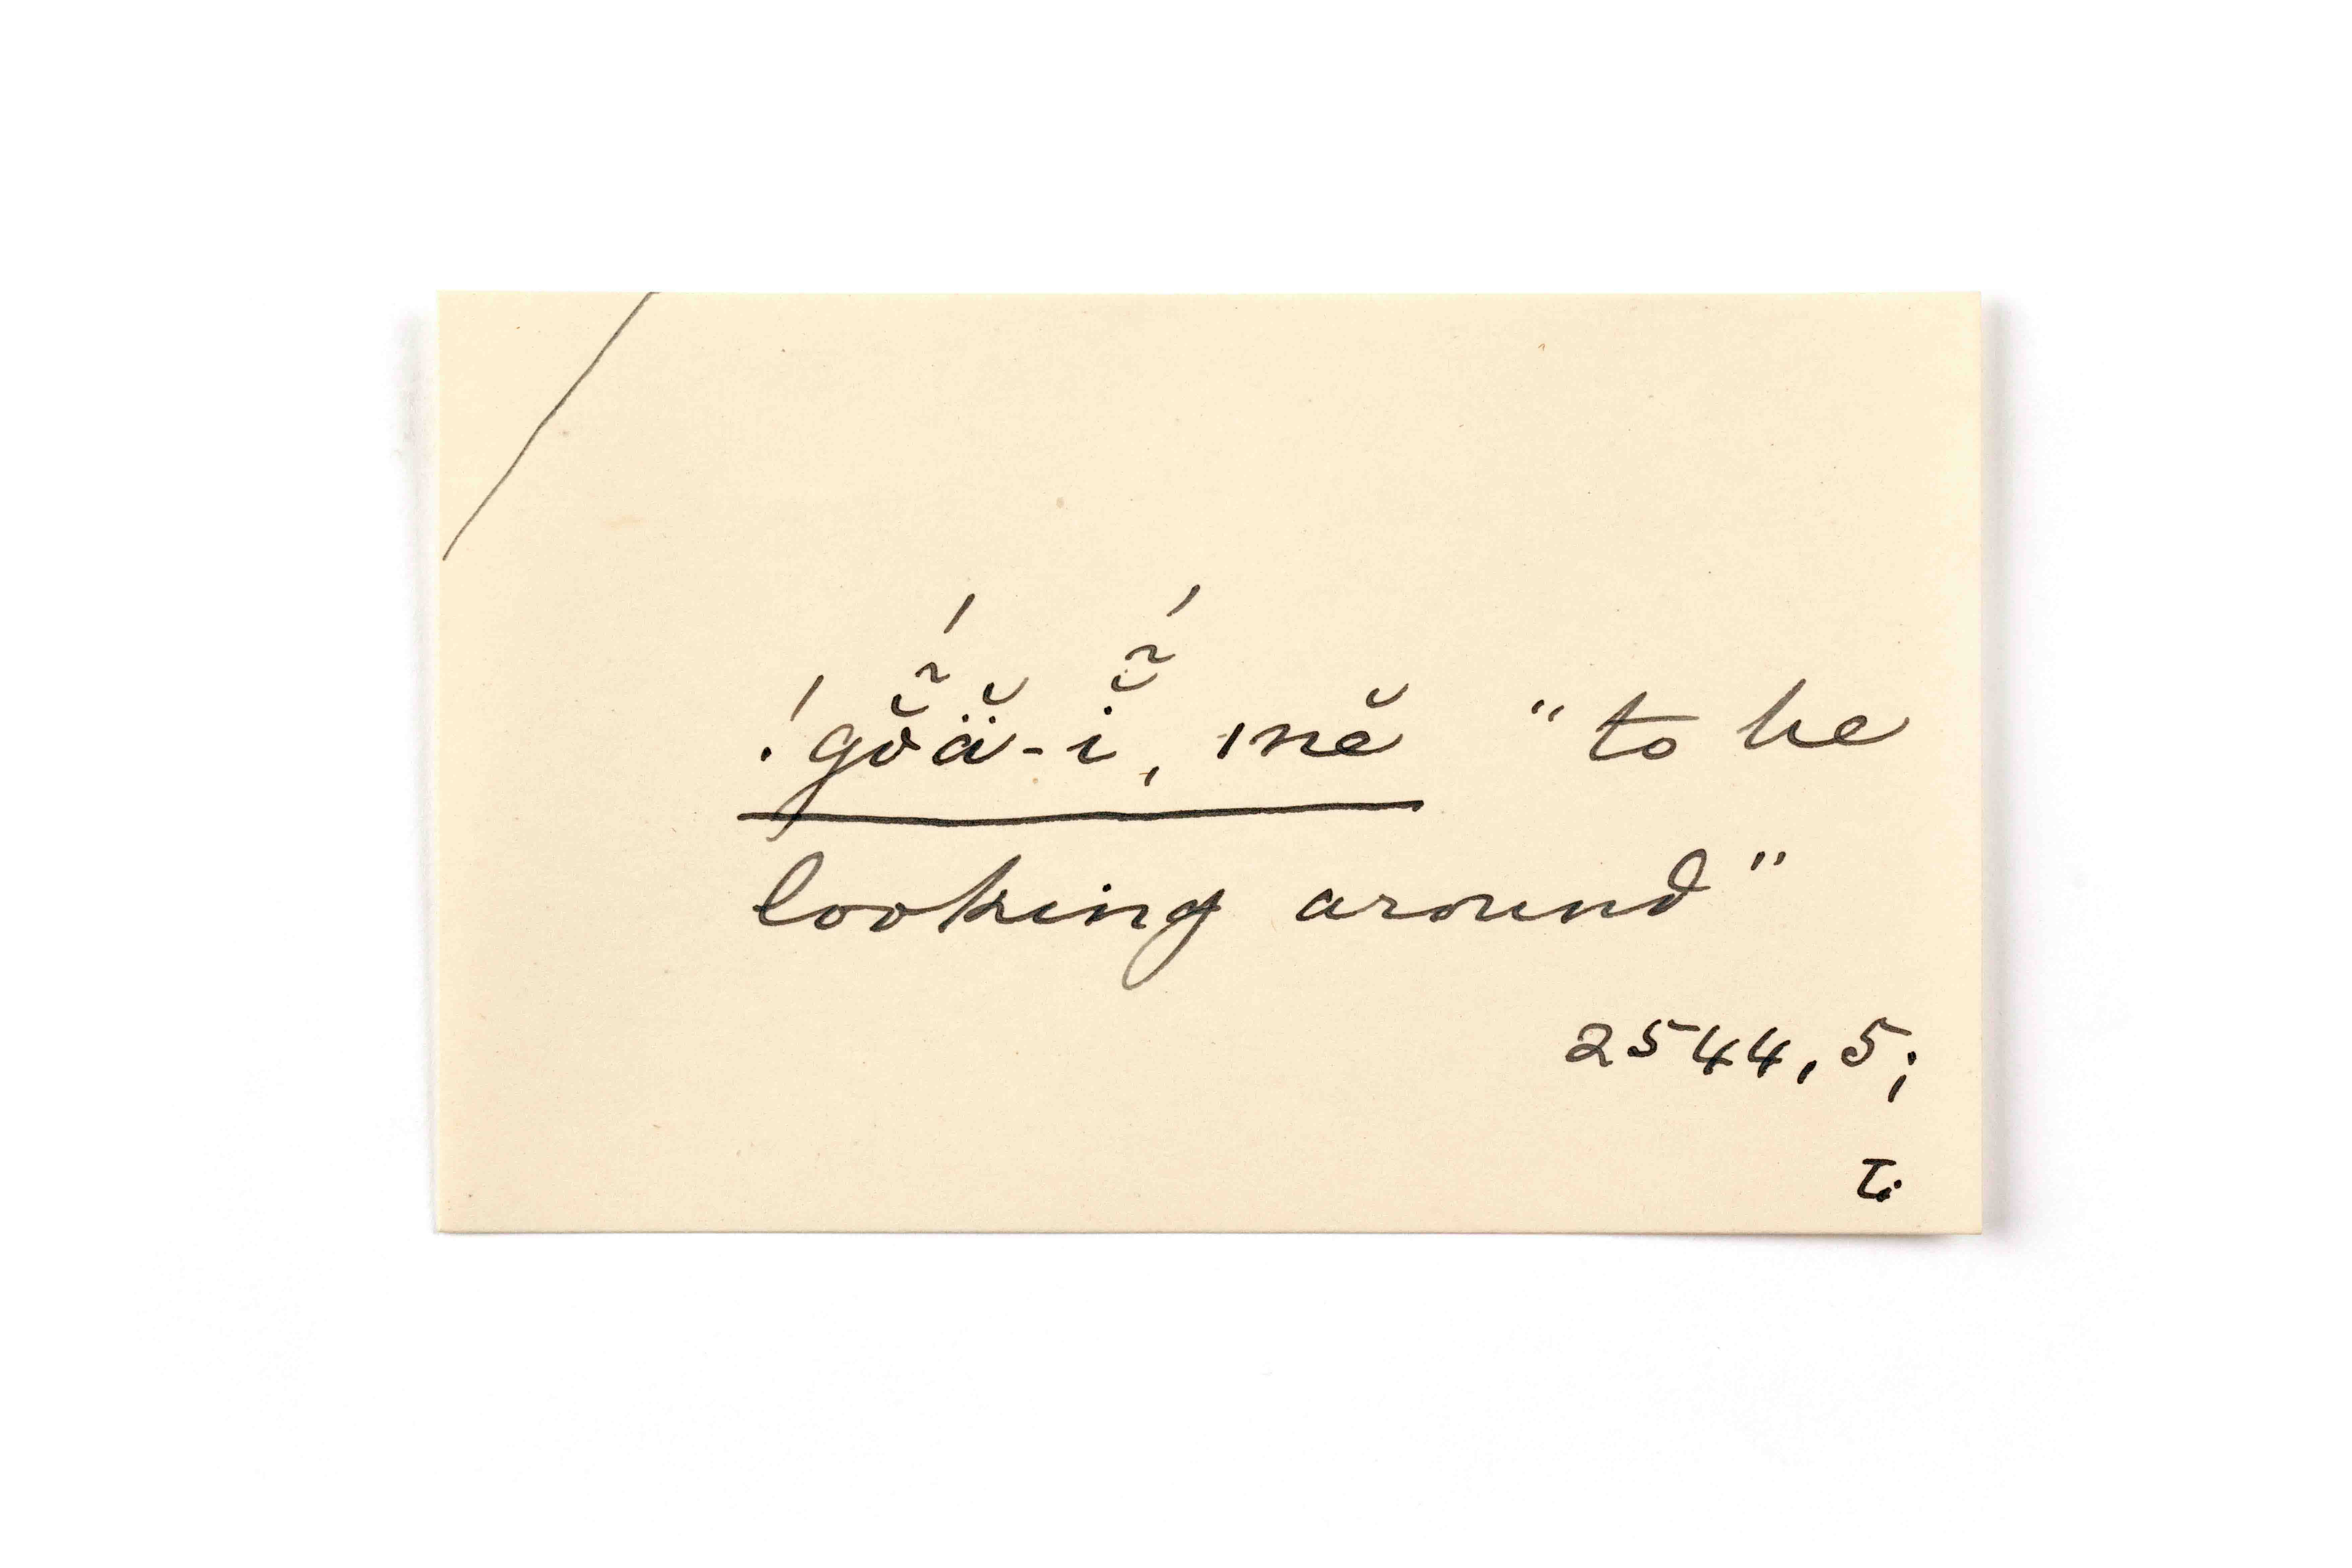 !gŏ̃́ä̆-ĭ̃́, ınĕ "to be
looking around"
2544,5;
T.